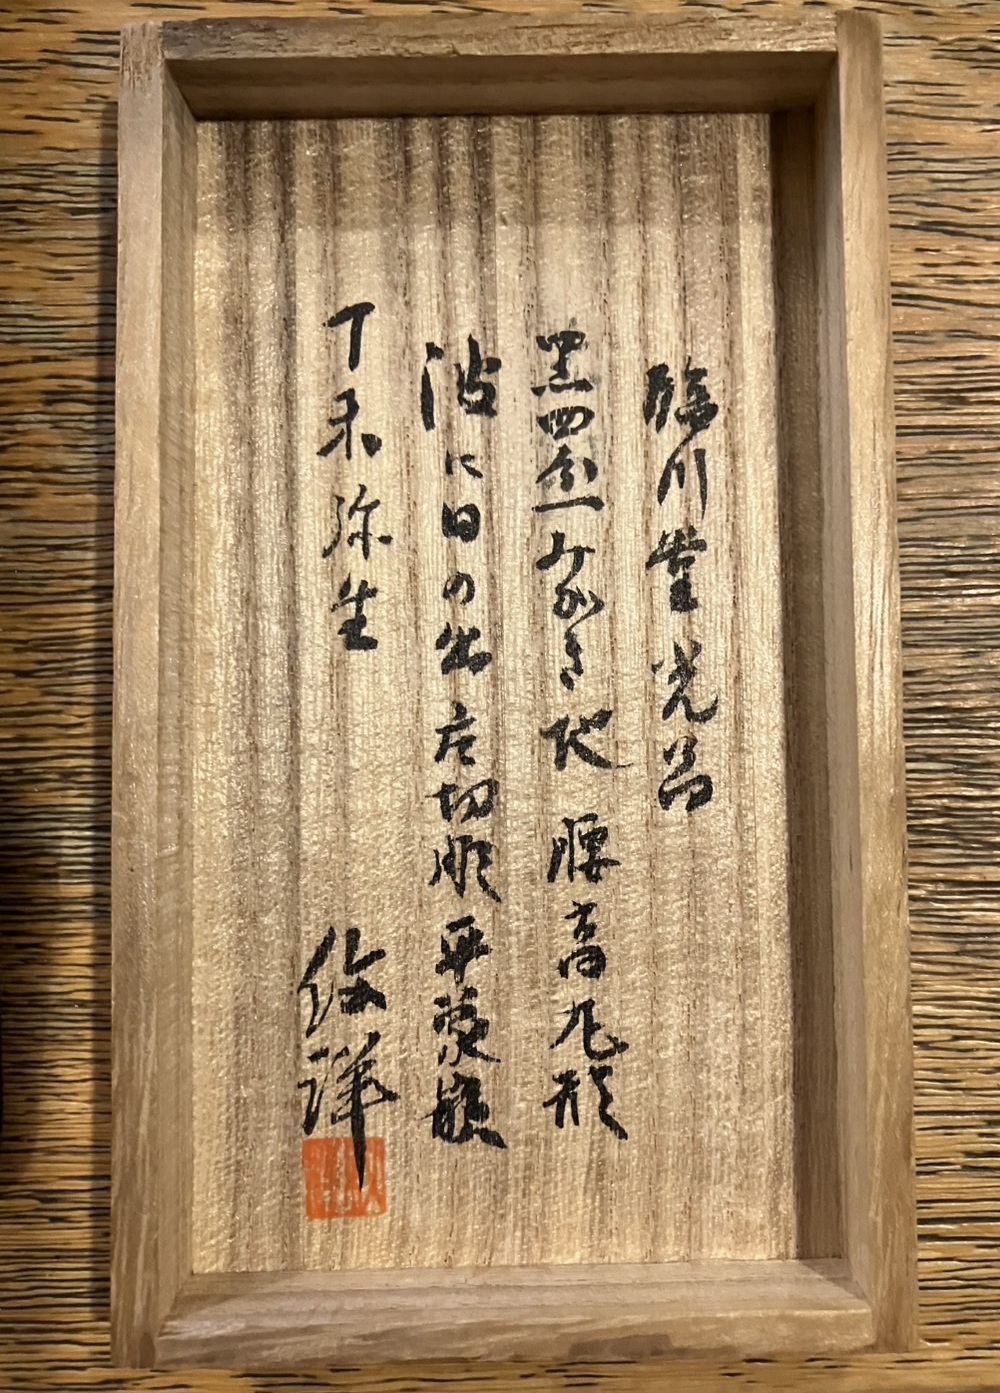 臨川堂光昌
黒四分一みがき地 腰高丸形
波に日の出 片切彫平象嵌
丁未 弥生